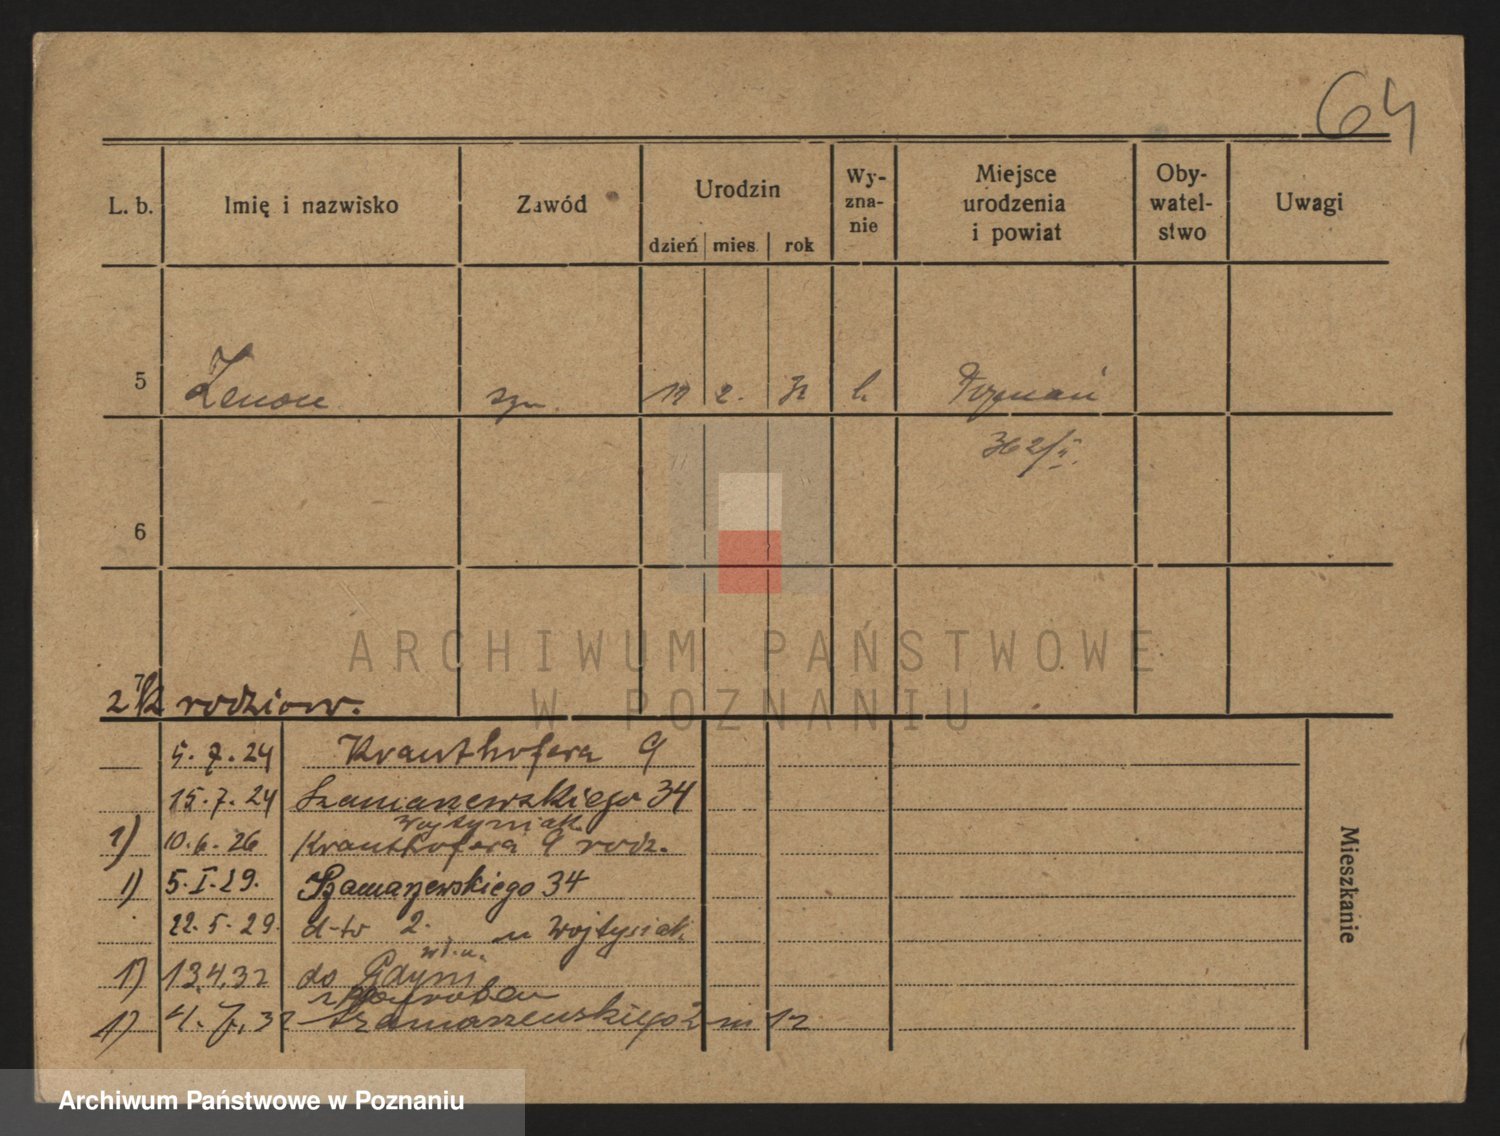 64
L. b. Imię i nazwisko Zawód Urodzin dzień mies. rok Wy-zna-nie Miejsce urodzenia i powiat Oby-watel-stwo Uwagi
5 Zenon syn. 2. 32 k. Poznań
362/II.
6
7
2 1/2 rodziow.
5.7.24 Krauthofera 9
15.7.24 Szamarzewskiego 34
Wojtyniak
1) 10.6.26 Krauthofera 9 rodz.
1) 5.I.29. Szamarzewskiego 34
22.5.29. d-to 2. u Wojtyniak
1) 13.4.32 do Gdyni
1) 4.7.32 Szamarzewskiego 2 m 12
Mieszkanie
ARCHIWUM PAŃSTWOWE
W POZNANIU
Archiwum Państwowe w Poznaniu